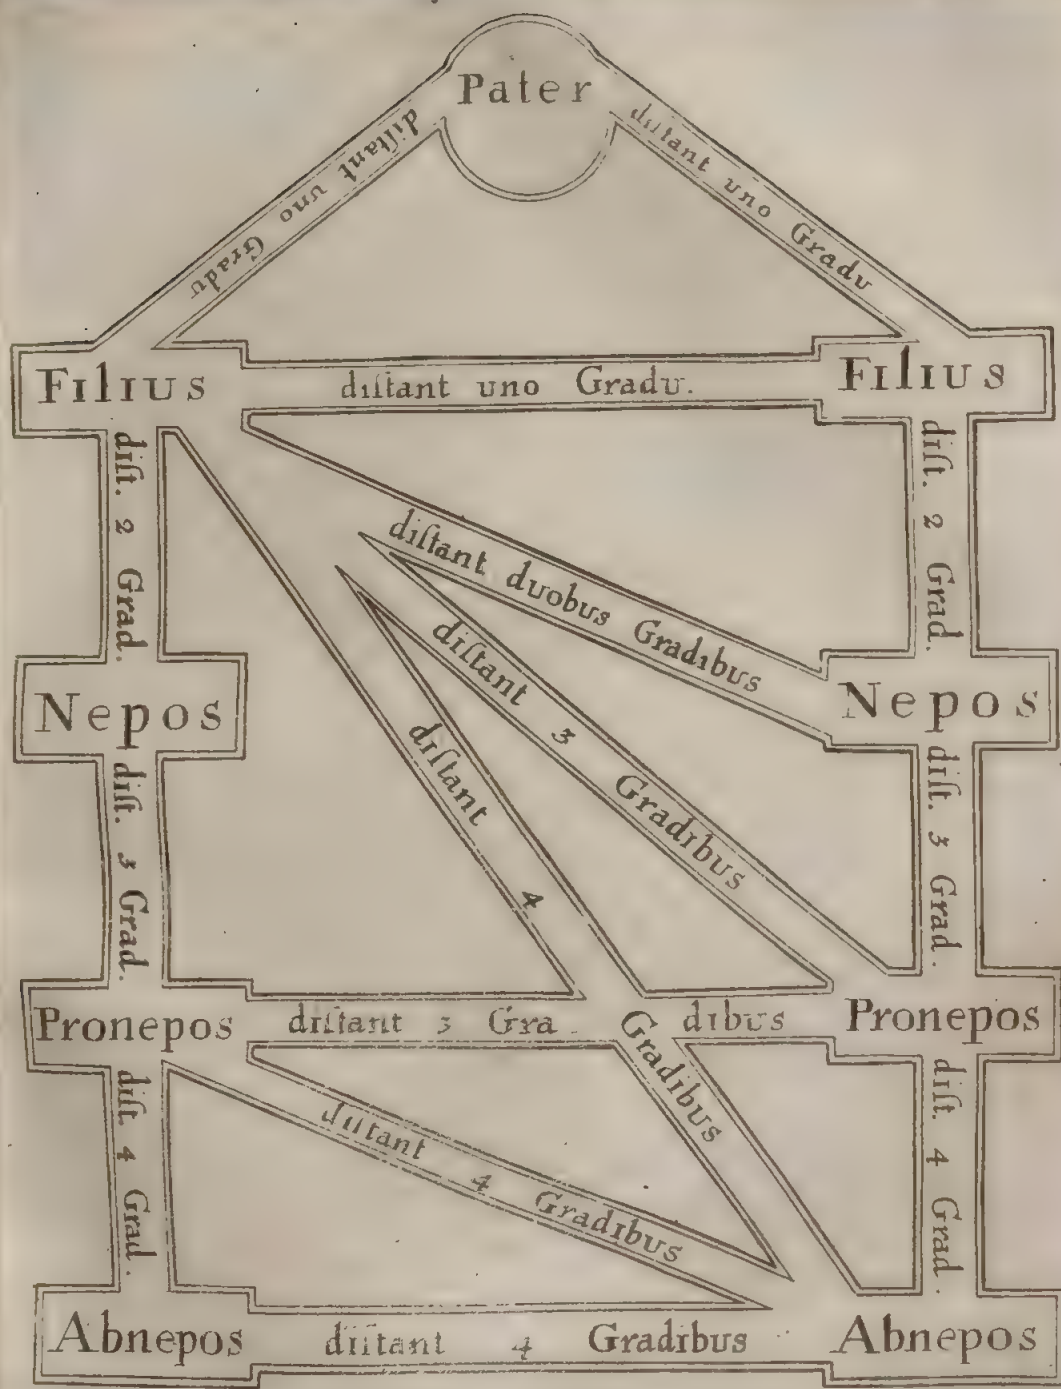 Pater
diſtant uno Gradu
diſtant uno Gradu
Filius
diſtant uno Gradu.
Filius
diſt. 2 Grad.
diſt. 2 Grad.
diſtant duobus Gradibus
diſtant 3 Gradibus
diſtant 4 Gradibus
Nepos
Nepos
diſt. 3 Grad.
diſt. 3 Grad.
Pronepos
diſtant 3 Gra dibus
Pronepos
diſt. 4 Grad.
diſt. 4 Grad.
diſtant 4 Gradibus
Abnepos
diſtant 4 Gradibus
Abnepos